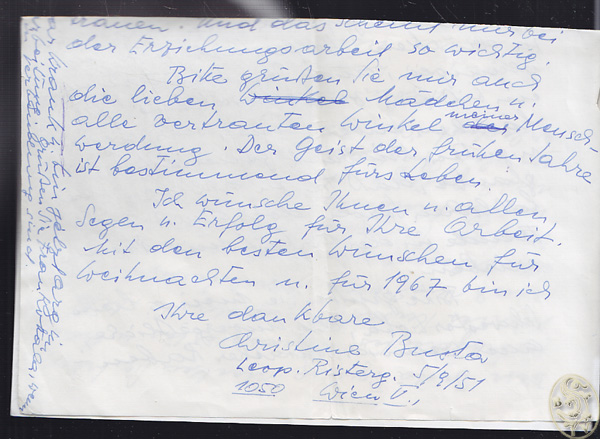 trauen. Und das scheint mir bei
der Erziehungsarbeit so wichtig.
Bitte grüßen Sie mir auch
die lieben Mädchen u.
alle vertrauten Winkel meiner Mensch-
werdung. Der Geist der frühen Jahre
ist bestimmend fürs Leben.
Ich wünsche Ihnen u. allen
Segen u. Erfolg für Ihre Arbeit.
Mit den besten Wünschen für
Weihnachten u. für 1967 bin ich
Ihre dankbare
Christine Busta
Leop. Risterg. 5/9/51
1050 Wien V.,